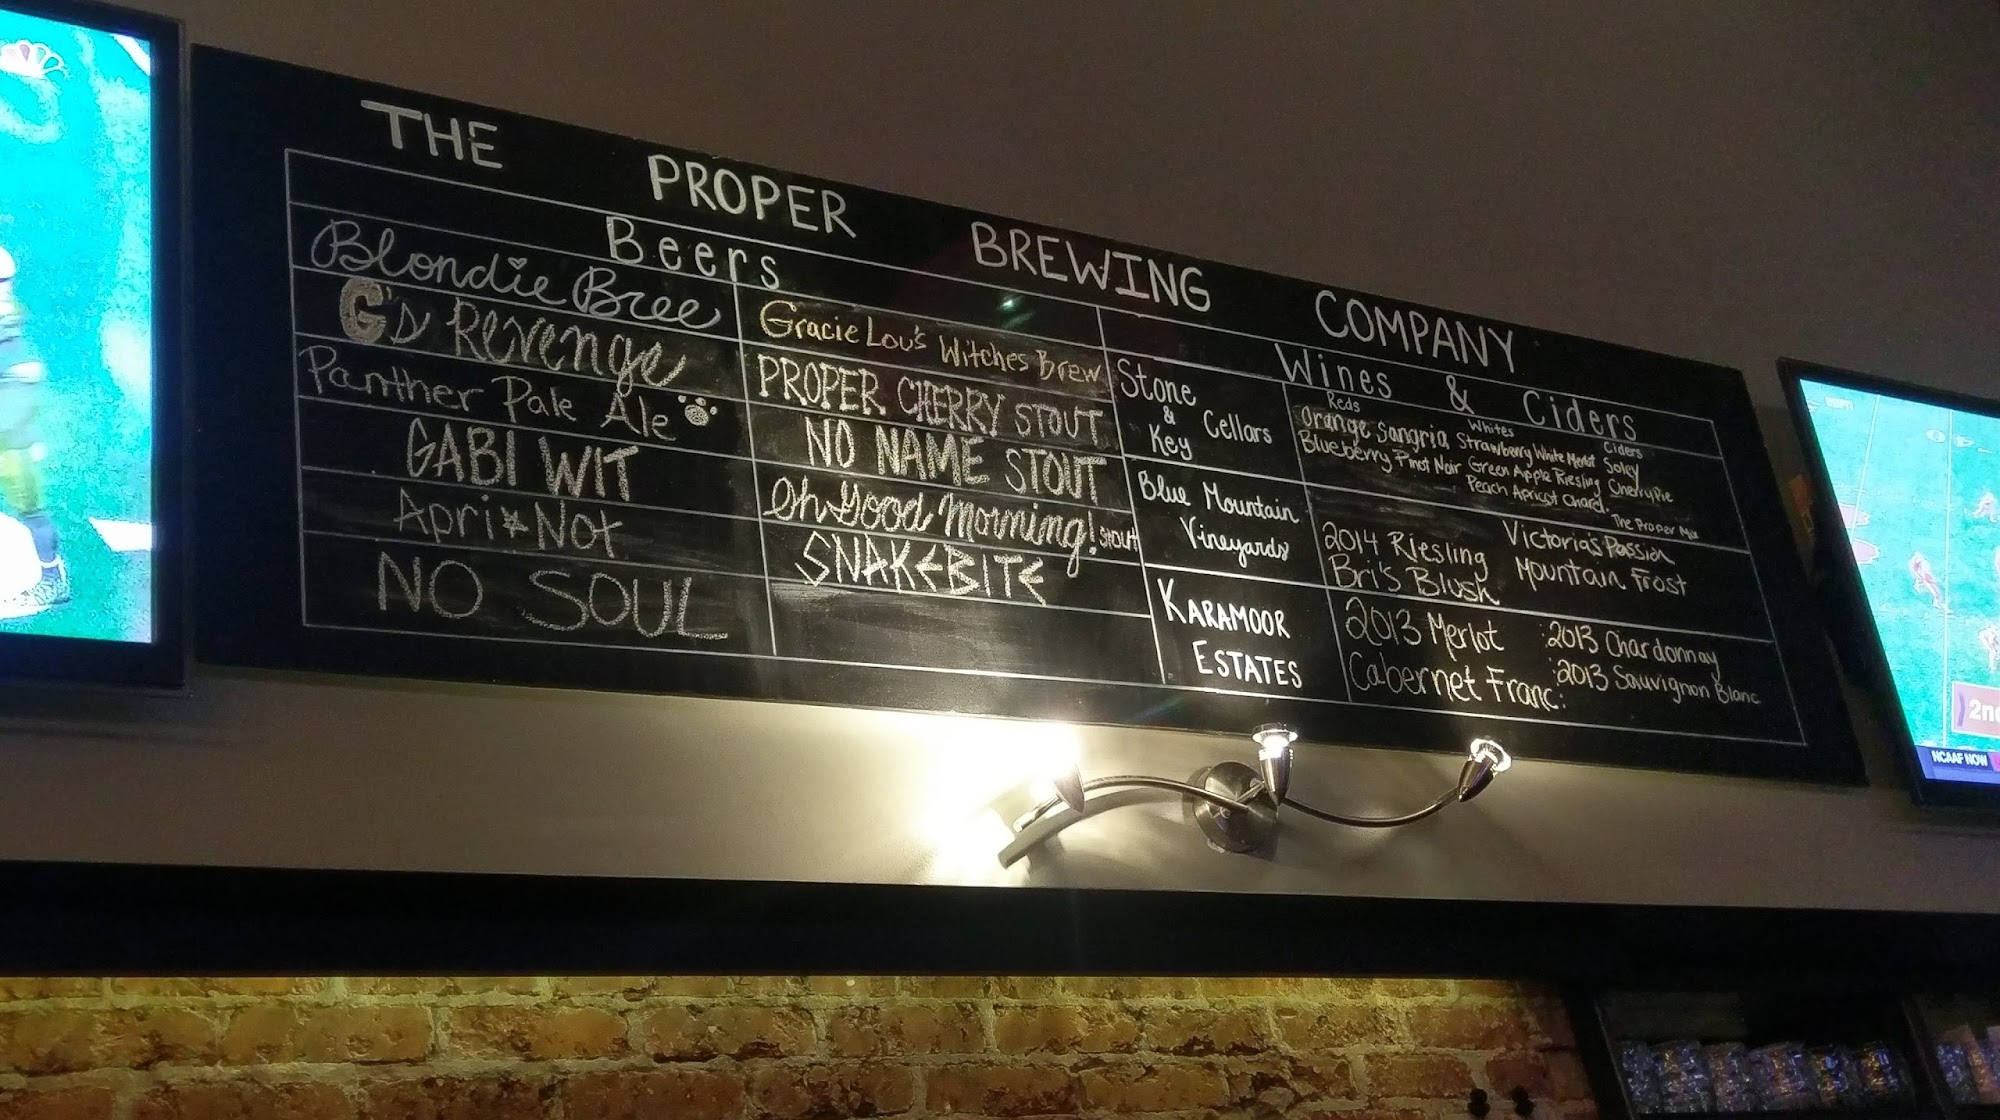 THE PROPER BREWING COMPANY
Beers
Blondie Bree
G's Revenge
Panther Pale Ale
GABI WIT
Apri*Not
NO SOUL
Gracie Lou's Witches Brew
PROPER CHERRY STOUT
NO NAME STOUT
Oh Good Morning! STOUT
SNAKEBITE
Wines & Ciders
Stone
&
Key
Cellars
Reds
Orange Sangria
Blueberry Pinot Noir
Whites
Strawberry White Merlot
Green Apple Riesling
Peach Apricot Chard.
Ciders
Soley
CherryPie
The Proper Mix
Blue Mountain
Vineyards
2014 Riesling
Bri's Blush
Victoria's Passion
Mountain Frost
KARAMOOR
ESTATES
2013 Merlot
Cabernet Franc:
:2013 Chardonnay
:2013 Sauvignon Blanc
2nd
NCAAF NOW